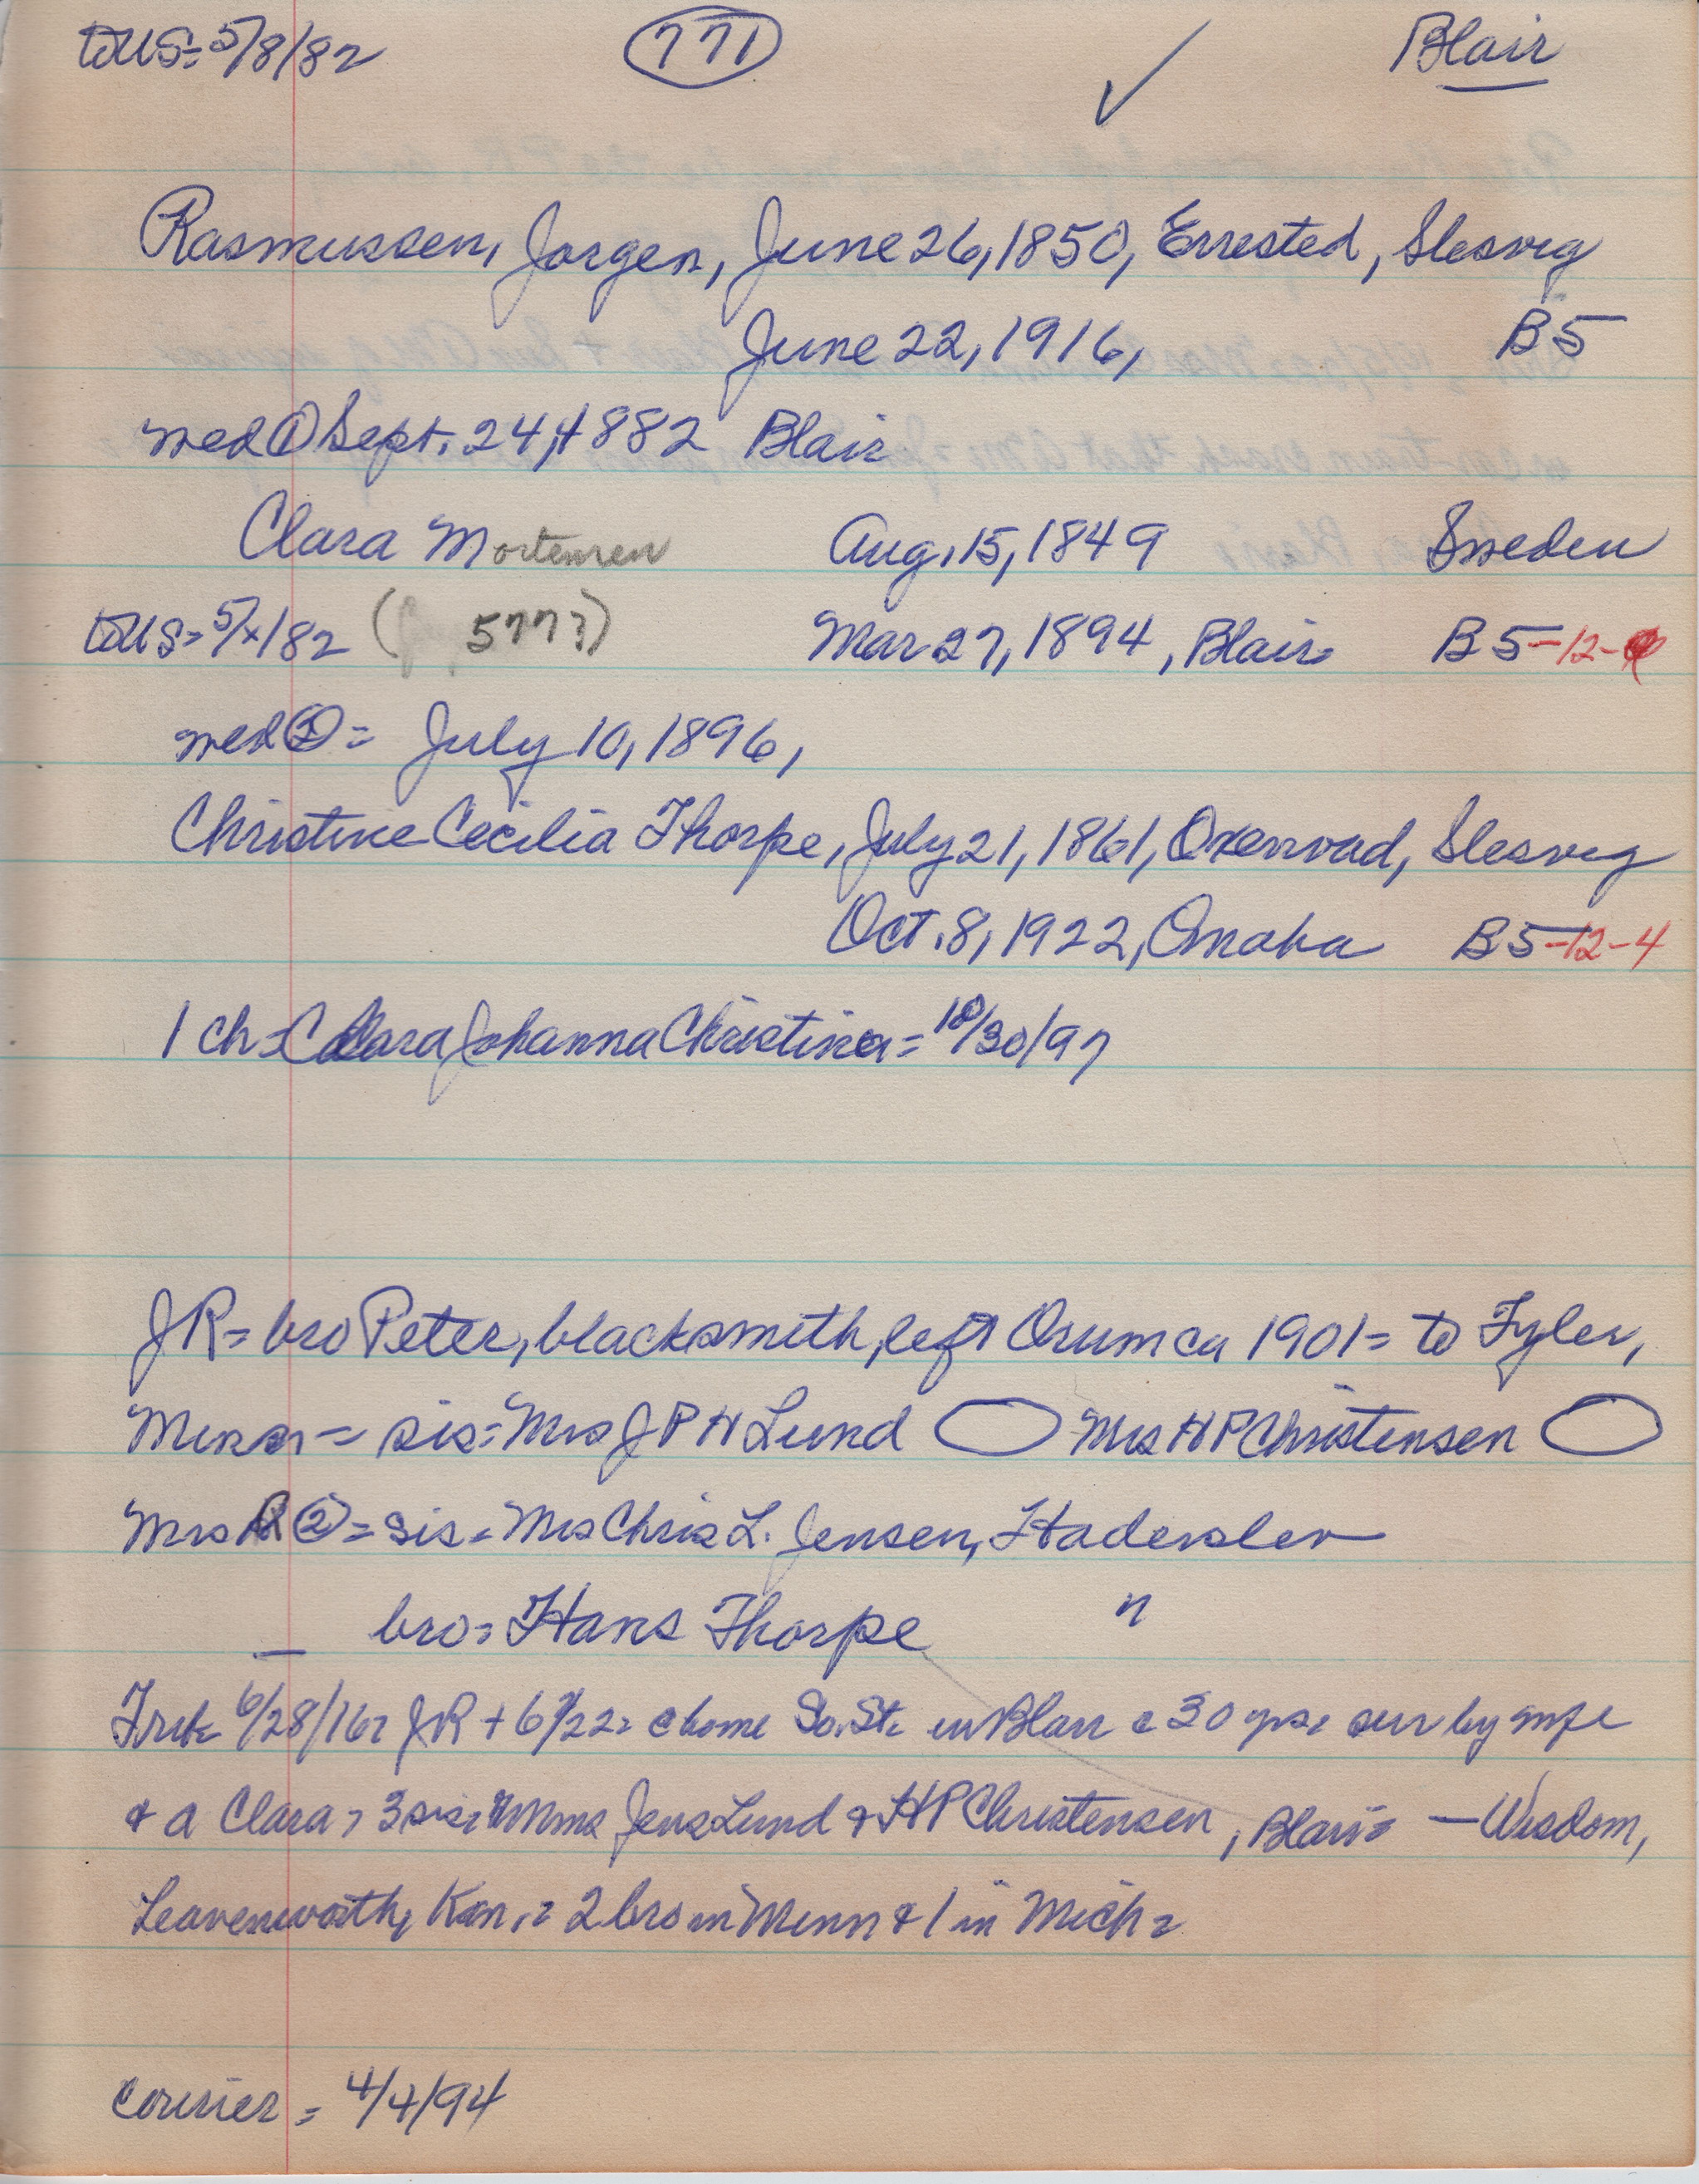 toUS = 5/8/82 771 ✓ Blair
Rasmussen, Jorgen, June 26, 1850, Errested, Slesvig
June 22, 1916, B5
med ① Sept. 24, 1882 Blair
Clara Mortensen Aug. 15, 1849 Sweden
toUS = 5/x/82 ( 577?) Mar 27, 1894, Blair = B5-12-
med ② = July 10, 1896,
Christine Cecilia Thorpe, July 21, 1861, Oxenvad, Slesvig
Oct. 8, 1922, Omaha B5-12-4
1 ch = Clara Johanna Christina = 10/30/97
JR = bro Peter, blacksmith, left Orum ca 1901 = to Tyler,
Minn = sis = Mrs JPH Lund Mrs HP Christensen
Mrs R ② = sis = Mrs Chris L. Jensen, Haderslev
bro = Hans Thorpe "
6/28/16 = JR + 6/22 = c home So. St. in Blair c 30 yrs = sur by wife
& d Clara = 3 sis = Mms Jens Lund & HP Christensen, Blair = — Wisdom,
Leavenworth, Kan. = 2 bro in Minn & 1 in Mich =
Courier = 4/4/94